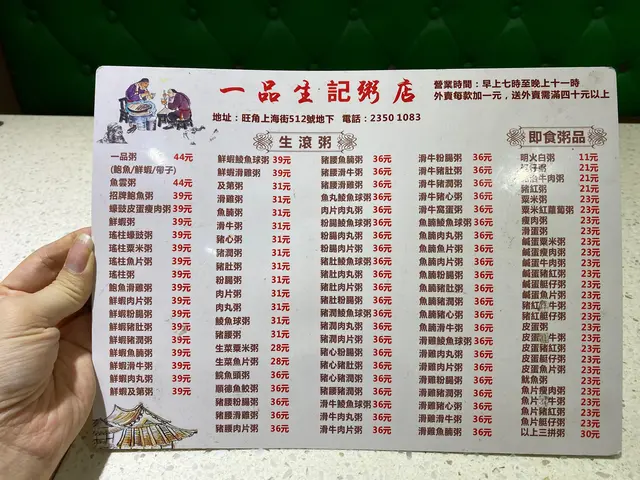 一品生記粥店
營業時間：早上七時至晚上十一時
外賣每款加一元，送外賣需滿四十元以上
地址：旺角上海街512號地下 電話：2350 1083
生滾粥
一品粥 44元
(鮑魚/鮮蝦/帶子)
魚雲粥 44元
招牌鮑魚粥 39元
蠔豉皮蛋瘦肉粥 39元
鮮蝦粥 39元
瑤柱蠔豉粥 39元
瑤柱粟米粥 39元
瑤柱魚片粥 39元
瑤柱粥 39元
鮑魚滑雞粥 39元
鮮蝦肉片粥 39元
鮮蝦粉腸粥 39元
鮮蝦豬肚粥 39元
鮮蝦豬潤粥 39元
鮮蝦魚腩粥 39元
鮮蝦滑牛粥 39元
鮮蝦肉丸粥 39元
鮮蝦及第粥 39元
鮮蝦鯪魚球粥 39元
鮮蝦滑雞粥 39元
及第粥 31元
滑雞粥 31元
魚腩粥 31元
滑牛粥 31元
豬心粥 31元
豬潤粥 31元
豬肚粥 31元
粉腸粥 31元
肉片粥 31元
肉丸粥 31元
鯪魚球粥 31元
豬腰粥 31元
生菜粟米粥 28元
生菜魚片粥 28元
鯇魚頭粥 36元
順德魚餃粥 36元
豬腰粉腸粥 36元
豬腰滑雞粥 36元
豬腰肉片粥 36元
豬腰魚腩粥 36元
豬腰滑牛粥 36元
豬腰滑雞粥 36元
魚丸鯪魚球粥 36元
肉片肉丸粥 36元
粉腸鯪魚球粥 36元
粉腸肉丸粥 36元
粉腸肉片粥 36元
豬肚鯪魚球粥 36元
豬肚肉丸粥 36元
豬肚肉片粥 36元
豬肚粉腸粥 36元
豬潤鯪魚球粥 36元
豬潤肉丸粥 36元
豬潤肉片粥 36元
豬心粉腸粥 36元
豬心豬肚粥 36元
豬心豬潤粥 36元
豬腰豬潤粥 36元
滑牛鯪魚球粥 36元
滑牛肉丸粥 36元
滑牛肉片粥 36元
滑牛粉腸粥 36元
滑牛豬肚粥 36元
滑牛豬潤粥 36元
滑牛豬心粥 36元
滑牛窩蛋粥 36元
魚腩鯪魚球粥 36元
魚腩肉丸粥 36元
魚腩魚片粥 36元
魚腩粉腸粥 36元
魚腩豬肚粥 36元
魚腩豬潤粥 36元
魚腩豬心粥 36元
魚腩滑牛粥 36元
滑雞鯪魚球粥 36元
滑雞肉丸粥 36元
滑雞肉片粥 36元
滑雞粉腸粥 36元
滑雞豬肚粥 36元
滑雞豬潤粥 36元
滑雞豬心粥 36元
滑雞滑牛粥 36元
滑雞魚腩粥 36元
即食粥品
明火白粥 11元
仔粥 21元
牛肉粥 21元
豬紅粥 21元
粟米粥 23元
粟米紅蘿蔔粥 23元
瘦肉粥 23元
滑蛋粥 23元
鹹蛋粟米粥 23元
鹹蛋瘦肉粥 23元
鹹蛋牛肉粥 23元
鹹蛋豬紅粥 23元
鹹蛋艇仔粥 23元
鹹蛋魚片粥 23元
豬紅牛粥 23元
豬紅艇仔粥 23元
皮蛋粥 23元
皮蛋牛粥 23元
皮蛋豬紅粥 23元
皮蛋艇仔粥 23元
皮蛋魚片粥 23元
魷魚粥 23元
魚片瘦肉粥 23元
魚片牛粥 23元
魚片豬紅粥 23元
魚片艇仔粥 23元
以上三拼粥 30元